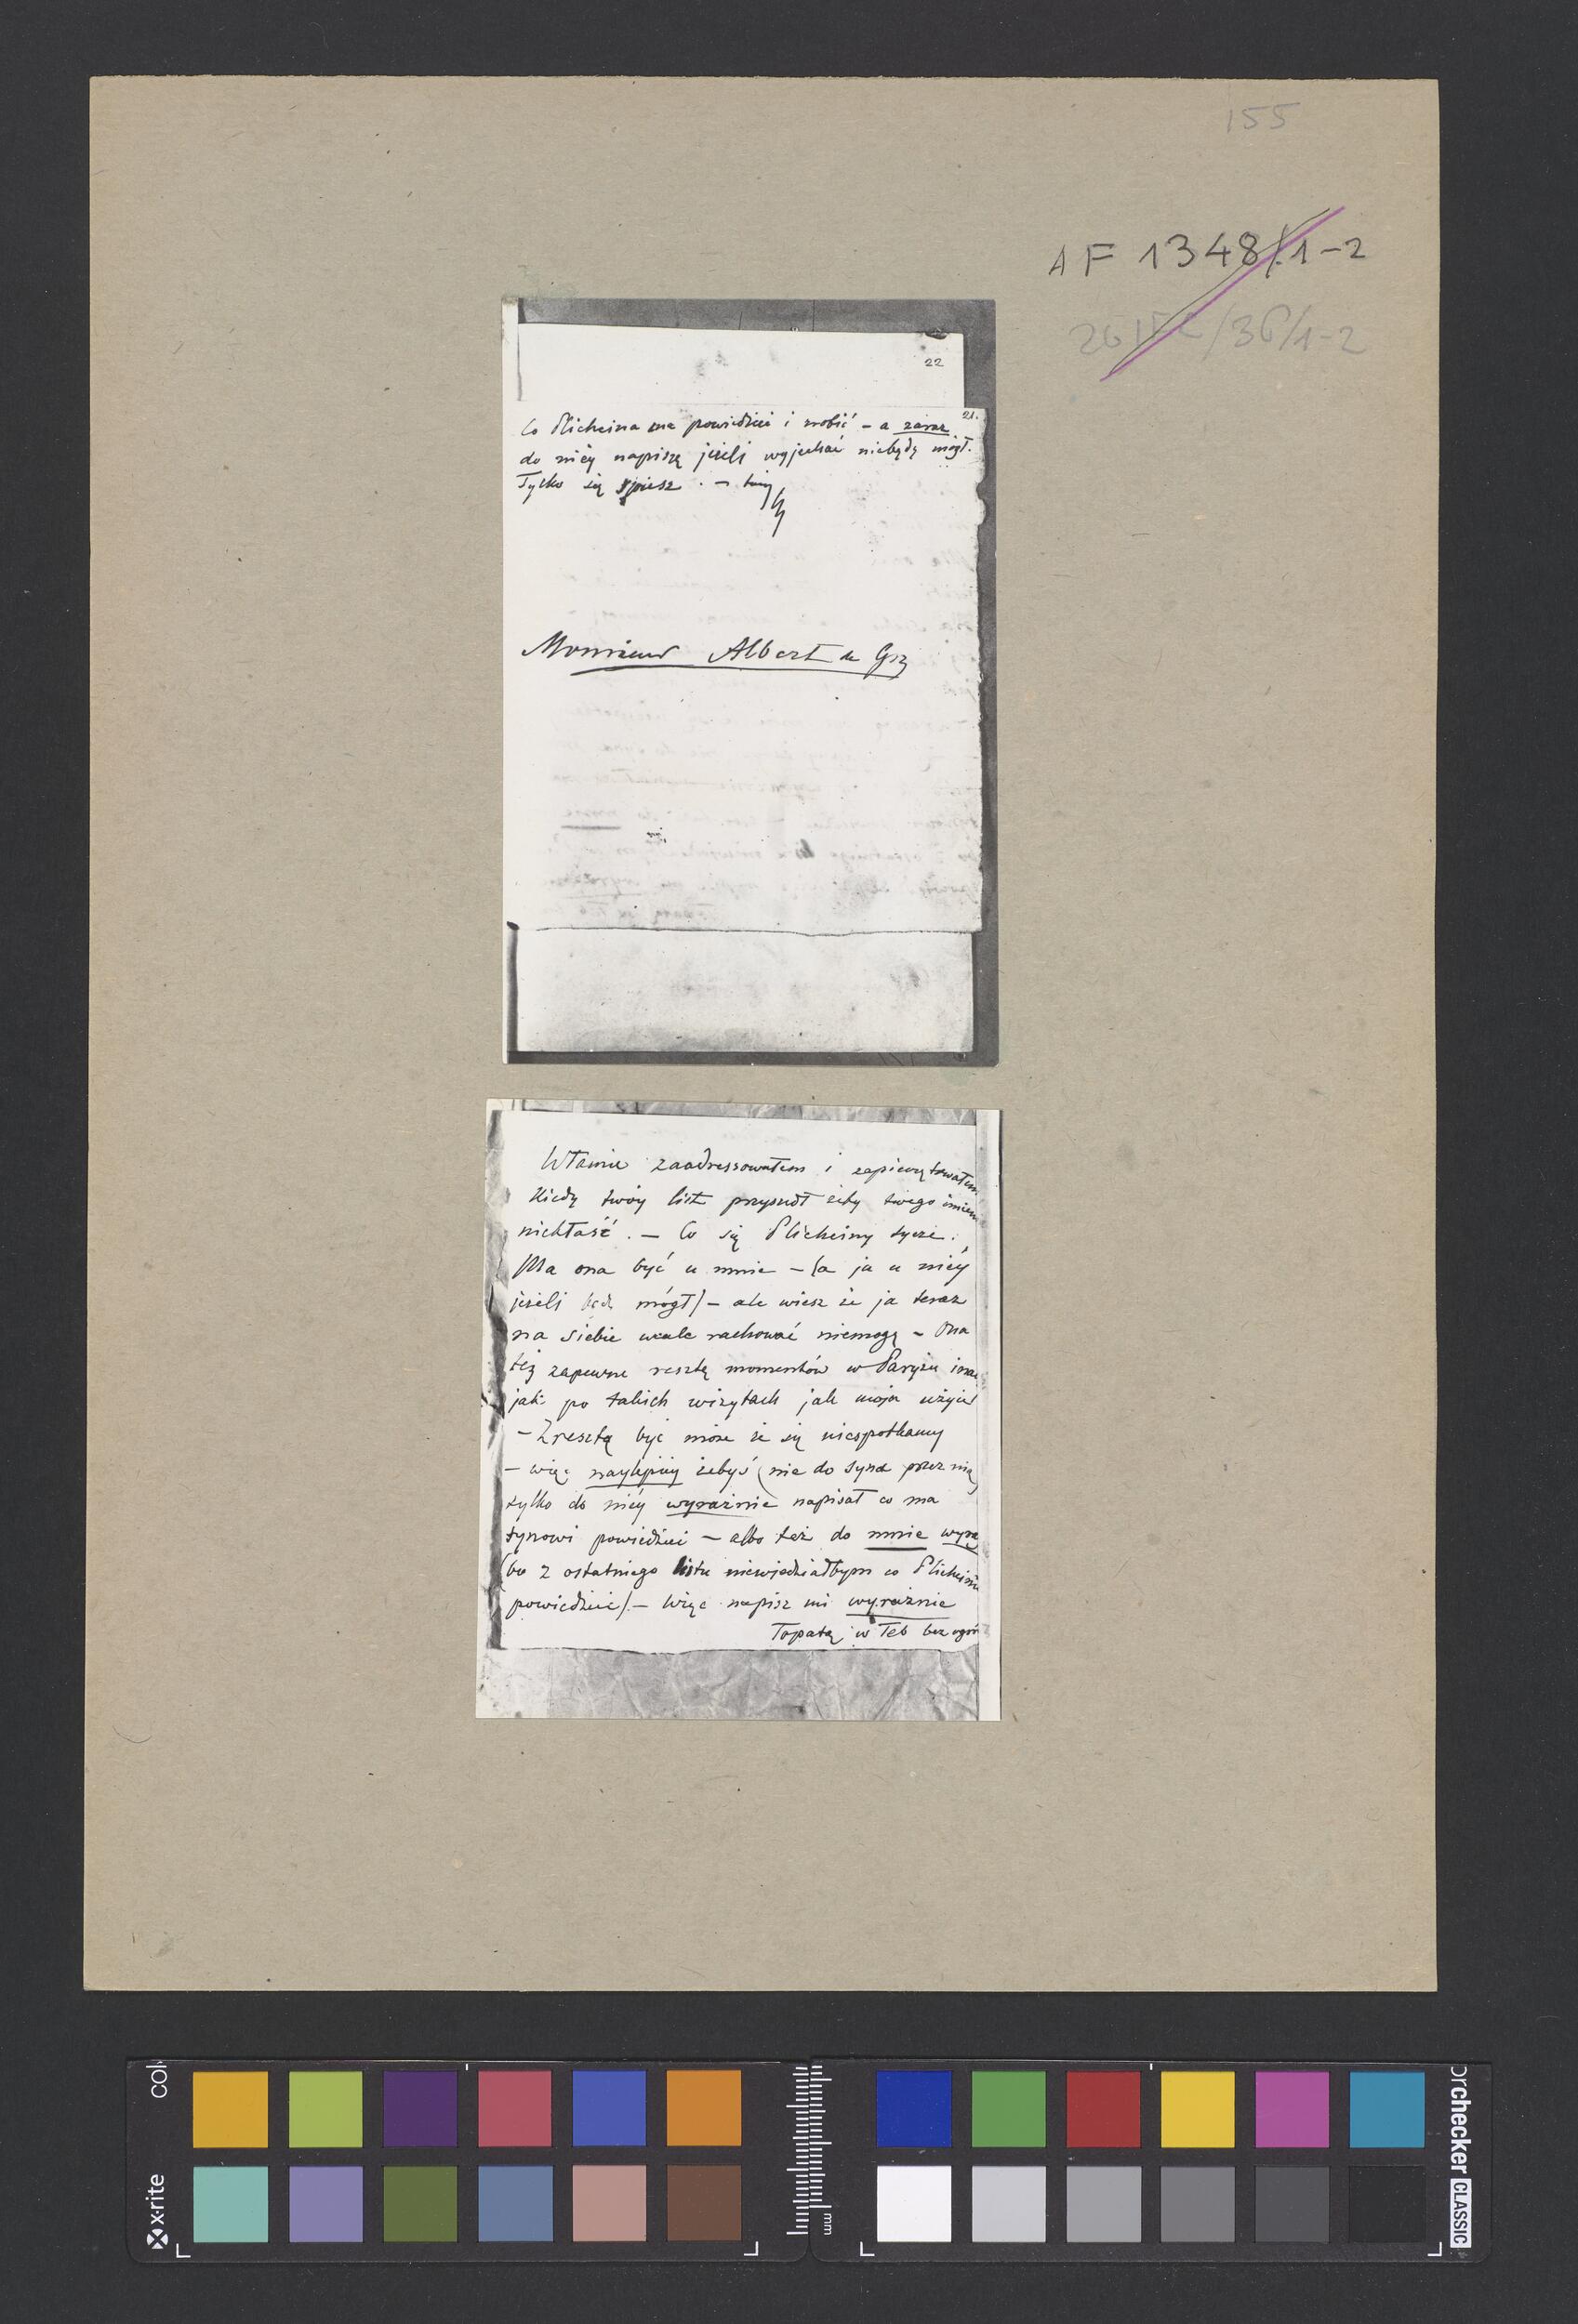 155
AF 1348/1-2
/36/1-2
22
21.
Co Plicheina ma powiedzieć i zrobić – a zaraz
do niéy napiszę jeżeli wyjechać niebędę mógł.
Tylko się spiesz. –
Monsieur Albert de Grz
Właśnie zaadressowałem i zapieczętowałem
kiedy twóy list przyszedł żeby twego imien
niekłaść. – Co się Plicheiny tycze.
Ma ona być u mnie – (a ja u niéy
jeżeli będę mógł) – ale wiesz że ja teraz
na siebie wcale rachować niemogę – Ona
też zapewne resztę momentów w Paryżu
jak po takich wizytach jak moja użyje
– Zresztą być może że się niespotkamy
– więc naylepiéy żebyś (nie do syna przez nią)
tylko do niéy wyraźnie napisał co ma
synowi powiedzieć – albo też do mnie wyra
(bo z ostatniego listu niewiedziałbym co Plicheinie
powiedzieć). – Więc napisz mi wyraźnie
Łopatą w łeb bez ogró
x-rite
mm
colorchecker CLASSIC